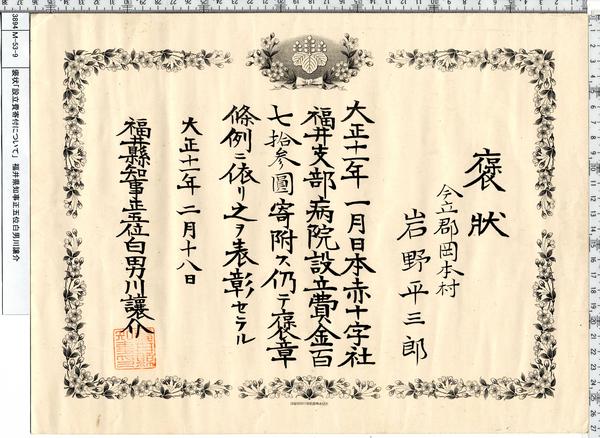 褒状
今立郡岡本村
岩野平三郎
大正十一年一月日本赤十字社
福井支部病院設立費金百
七拾参圓寄附ス仍テ褒章
條例ニ依リ之ヲ表彰セラル
大正十一年二月十八日
福井縣知事正五位白男川譲介
3894 M-53-9
褒状「設立費寄付について」 福井県知事正五位白男川譲介